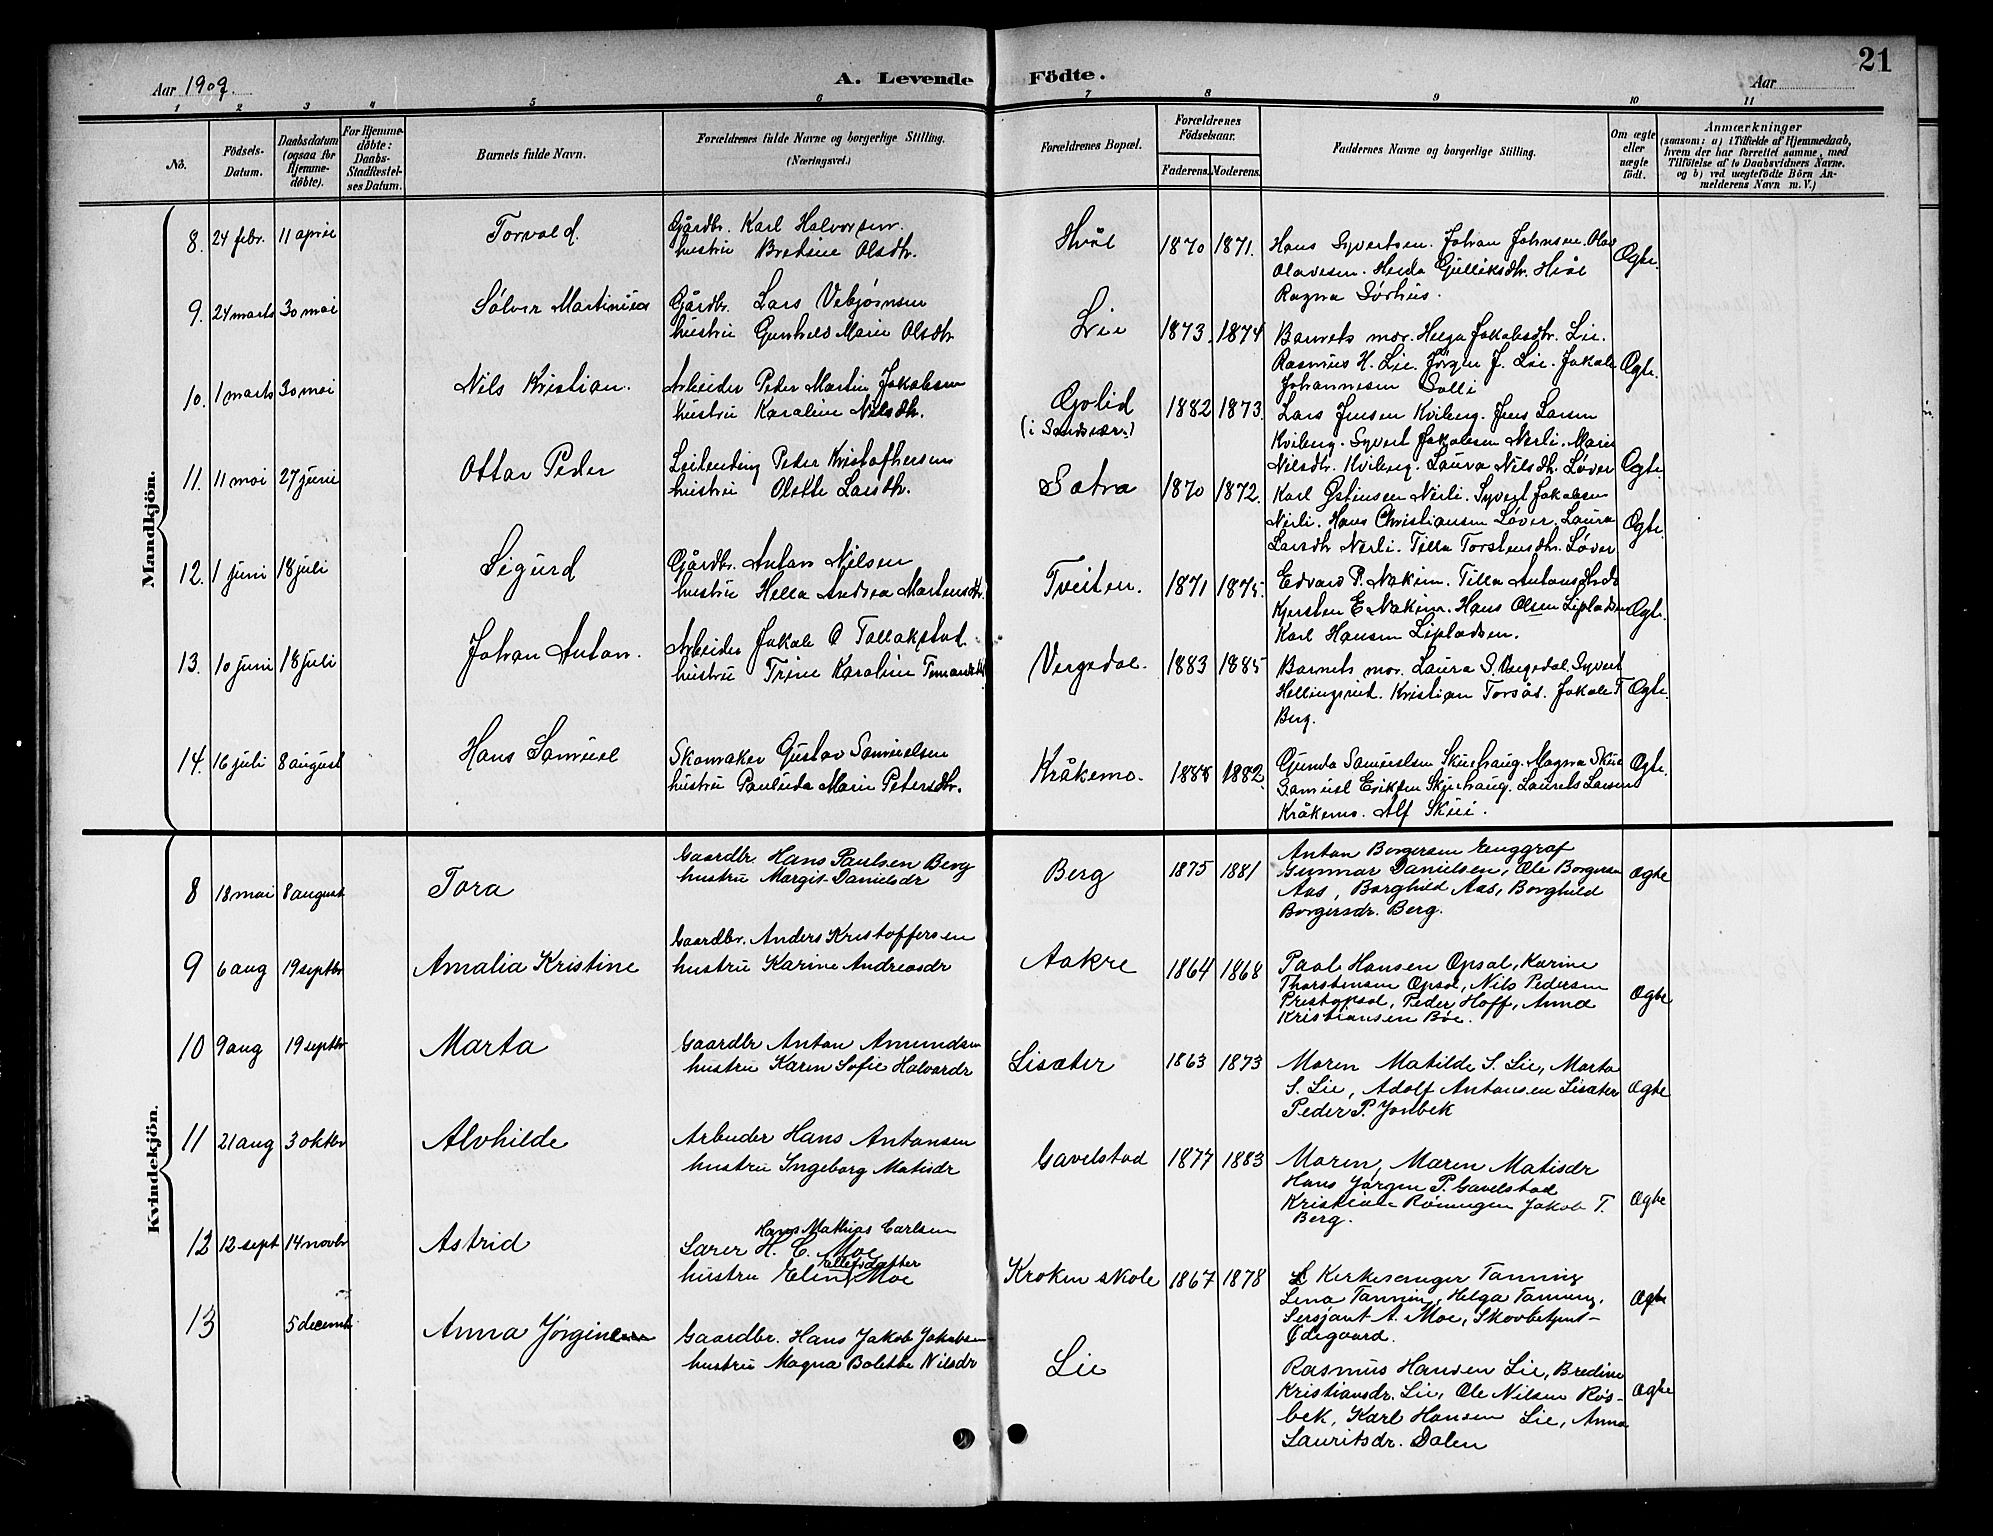 21
Aar 1909.
A. Levende Födte.
Aar
1 2 3 4 5 6 7 8 9 10 11
No.
Födsels-Datum.
Daabsdatum (ogsaa for Hjemme-döbte).
For Hjemme-döbte: Daabs-Stadfæstel-ses Datum.
Barnets fulde Navn.
Forældrenes fulde Navne og borgerlige Stilling. (Næringsvei.)
Forældrenes Bopæl.
Forældrenes Födselsaar.
Faderens. Moderens.
Faddernes Navne og borgerlige Stilling.
Om ægte eller uægte födt.
Anmærkninger
(saasom: a) i Tilfælde af Hjemmedaab, hvem der har forrettet samme, med Tilföielse af to Daabsvidners Navne, og b) ved uægtefödte Börn An-melderens Navn m. V.)
Mandkjön.
8. 24 febr. 11 april Torvald. Gårdbr. Karl Halvorsen. Hvål 1870 1871. Hans Syvertsen. Johan Johnsen. Olav
hustru Bredine Olsdtr. Olavesen. Herda Gulliksdtr. Hvål Ægte.
Ragna Sørhus.
9. 24 marts 30 mai Sølver Martinius Gårdbr. Lars Vebjørnsen Lie 1873. 1874 Barnets mor. Helga Jakobsdtr. Lie.
hustru Gunhild Marie Olsdtr. Rasmus H. Lie. Jørgen J. Lie. Jakob Ægte.
Johannesen Solli
10. 1 marts 30 mai Nils Kristian. Arbeider Peder Martin Jakobsen Golid 1882 1873. Lars Jensen Kviberg. Jens Larsen
hustru Karoline Nilsdtr. (i Sandsvær.) Kviberg. Syvert Jakobsen Nerli. Marie
Nilsdtr. Kviberg. Laura Nilsdtr. Løver Ægte.
11. 11 mai 27 juni Ottar Peder Leilending Peder Kristofhersen Satra 1870 1872. Karl Østensen Nerli. Syvert Jakobsen
hustru Olette Larsdtr. Nerli. Hans Christiansen Løver. Laura Ægte.
Larsdtr Nerli. Tilla Torstensdtr. Løver
12. 1 juni 18 juli Sigurd Gårdbr. Anton Nilsen Tveiten. 1871 1875. Edvard P. Nakim. Tilla Antonsdtr
hustru Hella Andrea Martensdtr. Kjersten E Nakim. Hans Olsen Liplassen Ægte.
Karl Hansen Lipladsen.
13. 10 juni 18 juli Johan Anton. Arbeider Jakob O Tollakstad. Vergedal. 1883 1885 Barnets mor. Laura S. Vægedal. Syvert
hustru Trine Karoline Hellingsrud. Kristian Torsås. Jakob T Ægte.
Berg.
14. 16 juli 8 august Hans Samuel Skomaker Gustav Samuelsen Kråkemo. 1882. Gunda Samuelsen Skuehaug. Magna Skue
hustru Paulida Marie Petersdtr. Samuel Eriksen Skuehaug. Laurits Larsen Ægte.
Kråkemo. Alf Skue.
Kvindekjön.
8 18 mai 8 august Tora Gaardbr. Hans Paulsen Berg Berg 1875 1881 Anton Borgersen Enggraf
hustru Margit Danielsdr Gunnar Danielsen, Ole Borgersen Ægte
Aas, Borghild Aas, Borghild
Borgersdr. Berg.
9 6 aug 19 septbr Amalia Kristine Gaardbr. Anders Kristoffersen Aakre 1864 1868 Paal Hansen Opsal, Karine
hustru Karine Andreasdr Thorstensen Opsal, Nils Pedersen
Prestopsal, Peder Hoff, Anna Ægte
Kristiansen Böe.
10 9 aug 19 septbr Marta Gaardbr Anton Amundsen Lisæter 1863 1873 Moren Matilde S. Lie, Marta
hustru Karen Sofie Halvordr S. Lie, Adolf Antonsen Lisæter Ægte
Peder P. Jonbek
11 21 aug 3 oktbr Alvhilde Arbeider Hans Antonsen Gavelstad 1877 1883 Moren, Maren Matisdr
hustru Ingeborg Matisdr Hans Jørgen P. Gavelstad
Kristian Röningen Jakob T. Ægte
Berg.
12 12 sept 14 novbr Astrid Hans Mathias Carlsen
Lærer H. C. Moe Kroken skole 1867 1878 Kirkesanger Tanning
hustru Elin Ellefsdatter Moe Lena Tanning, Helga Tanning, Ægte
Sersjant A. Moe, Skovbetjent
Ødegaard.
13 5 decemb Anna Jørgine Gaardbr. Hans Jakob Jakobsen Lie Rasmus Hansen Lie, Bredine
hustru Magna Bolette Nilsdr Kristiansdr. Lie, Ole Nilsen Røs- Ægte
bek, Karl Hansen Lie, Anna
Lauritsdr. Dalen